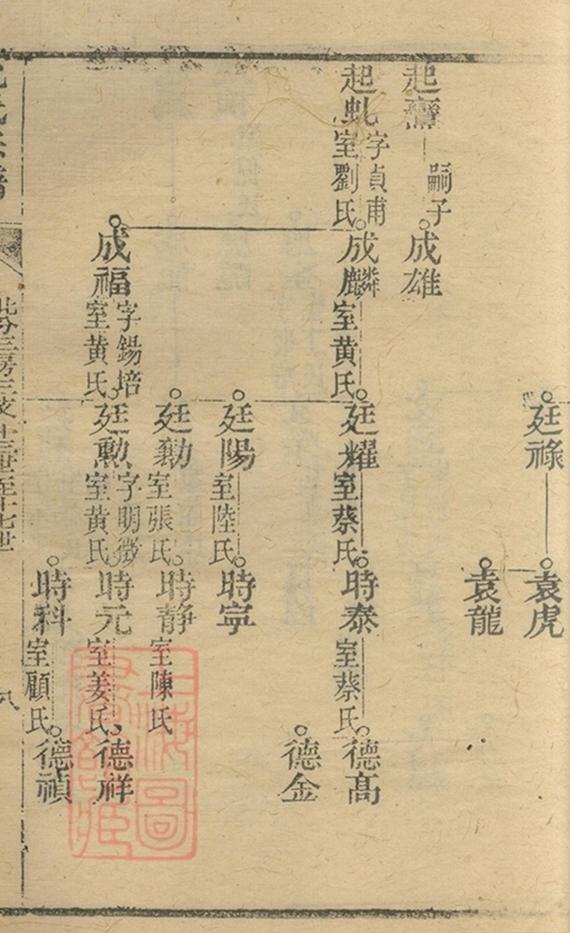 廷祿
袁虎
袁龍
起
嗣子
成雄
起虬
字貞甫
室劉氏
成麟
室黄氏
廷耀
室蔡氏
時泰
室蔡氏
德髙
德金
廷陽
室陸氏
時寧
廷勷
室張氏
時静
室陳氏
成福
字錫培
室黄氏
廷勲
字明徵
室黄氏
時元
室姜氏
德祥
時科
室顧氏
德禎
氏宗譜
北分三房三支十三世至十七世
八
上海圖書館藏